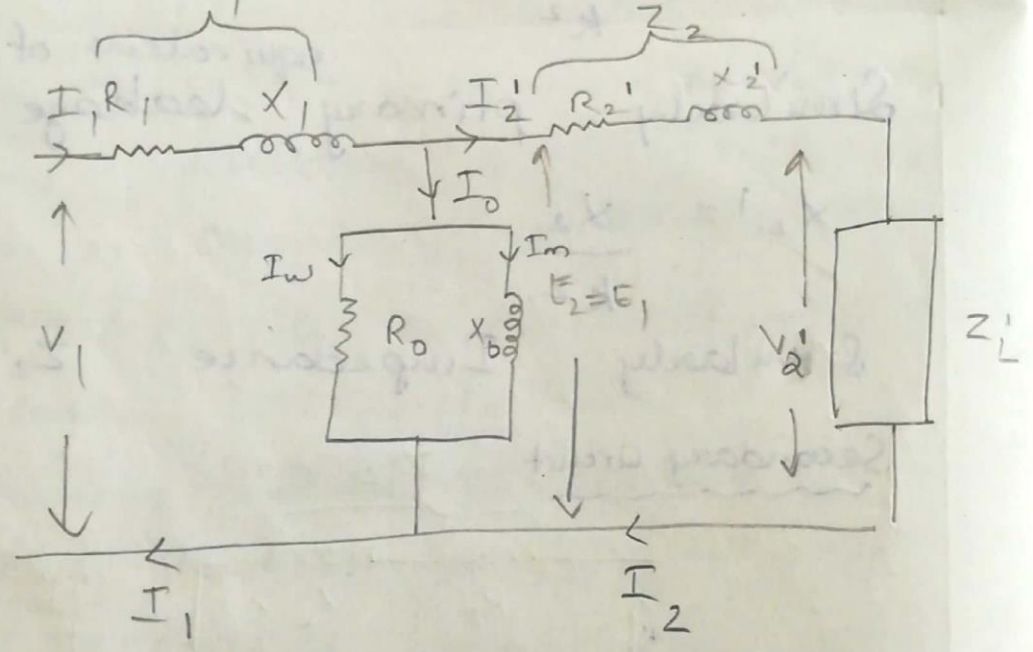 Z2
I1 R1 X1 I2' R2' X2'
I0
Iw Im
E2=E1
V1 R0 X0 V2' ZL'
I1 I2